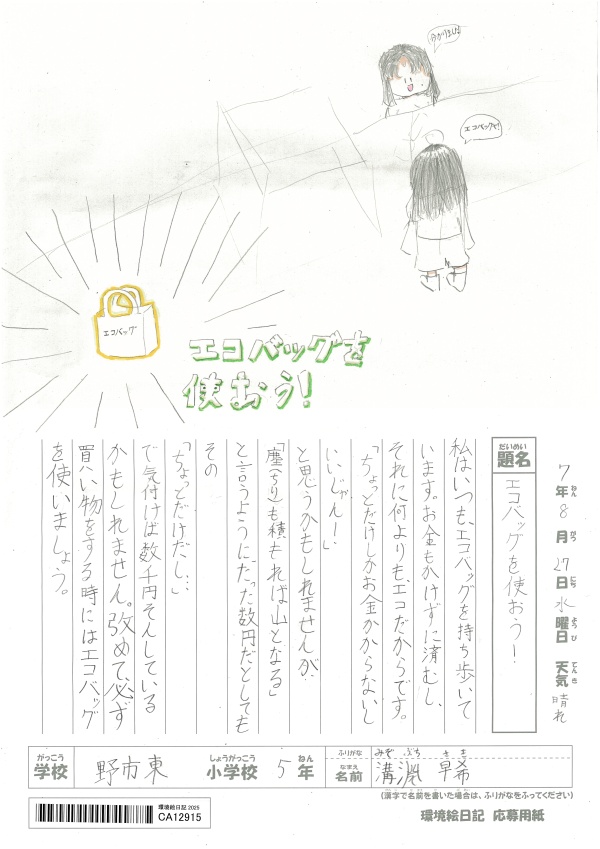 分かりました
エコバッグで!
エコバッグ
エコバッグを
使おう!
7年8月27日水曜日 天気 晴れ
ねん がつ にち ようび てんき
だいめい
題名
エコバッグを使おう!
私はいつも、エコバッグを持ち歩いて
います。お金もかけずに済むし、
それに何よりも、エコだからです。
「ちょっとだけしかお金かからないし
いいじゃん!」
と思うかもしれませんが、
「塵(ちり)も積もれば山となる」
と言うように、たった数円だとしても
その
「ちょっとだけだし…」
で気付けば数千円そんしている
かもしれません。改めて、必ず
買い物をする時にはエコバッグ
を使いましょう。
がっこう しょうがっこう ねん
学校 野市東 小学校 5年
ふりがな みぞ ぶち さき
なまえ
名前 溝渕 早希
(漢字で名前を書いた場合は、ふりがなをふってください)
環境絵日記 2025
CA12915
環境絵日記 応募用紙